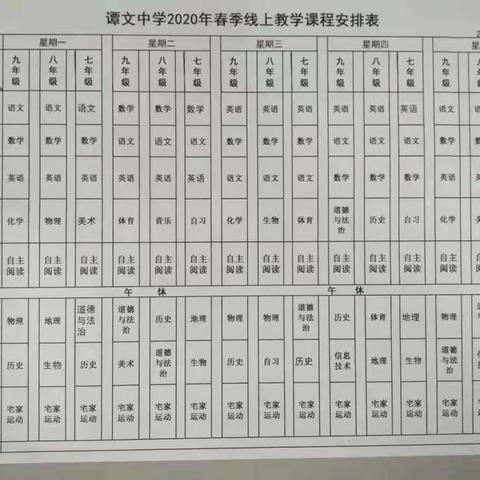 谭文中学2020年春季线上教学课程安排表
星期一 星期二 星期三 星期四 星
九年级 八年级 七年级 九年级 八年级 七年级 九年级 八年级 七年级 九年级 八年级 七年级 九年级
语文 语文 语文 数学 数学 数学 英语 英语 英语 英语 英语 英语 语文
数学 数学 数学 语文 语文 语文 数学 数学 数学 语文 数学 数学 数学
英语 英语 英语 英语 英语 英语 语文 语文 语文 数学 语文 语文 英语
化学 物理 美术 体育 音乐 自习 化学 生物 体育 道德与法治 历史 自习 化学
自主阅读 自主阅读 自主阅读 自主阅读 自主阅读 自主阅读 自主阅读 自主阅读 自主阅读 自主阅读 自主阅读 自主阅读 自主阅读
午 休 午 休
物理 地理 道德与法治 道德与法治 历史 地理 物理 物理 道德与法治 历史 体育 地理 物理
历史 生物 历史 美术 道德与法治 生物 历史 自习 历史 信息技术 地理 生物 道德与法治
宅家运动 宅家运动 宅家运动 宅家运动 宅家运动 宅家运动 宅家运动 宅家运动 宅家运动 宅家运动 宅家运动 宅家运动 宅家运动